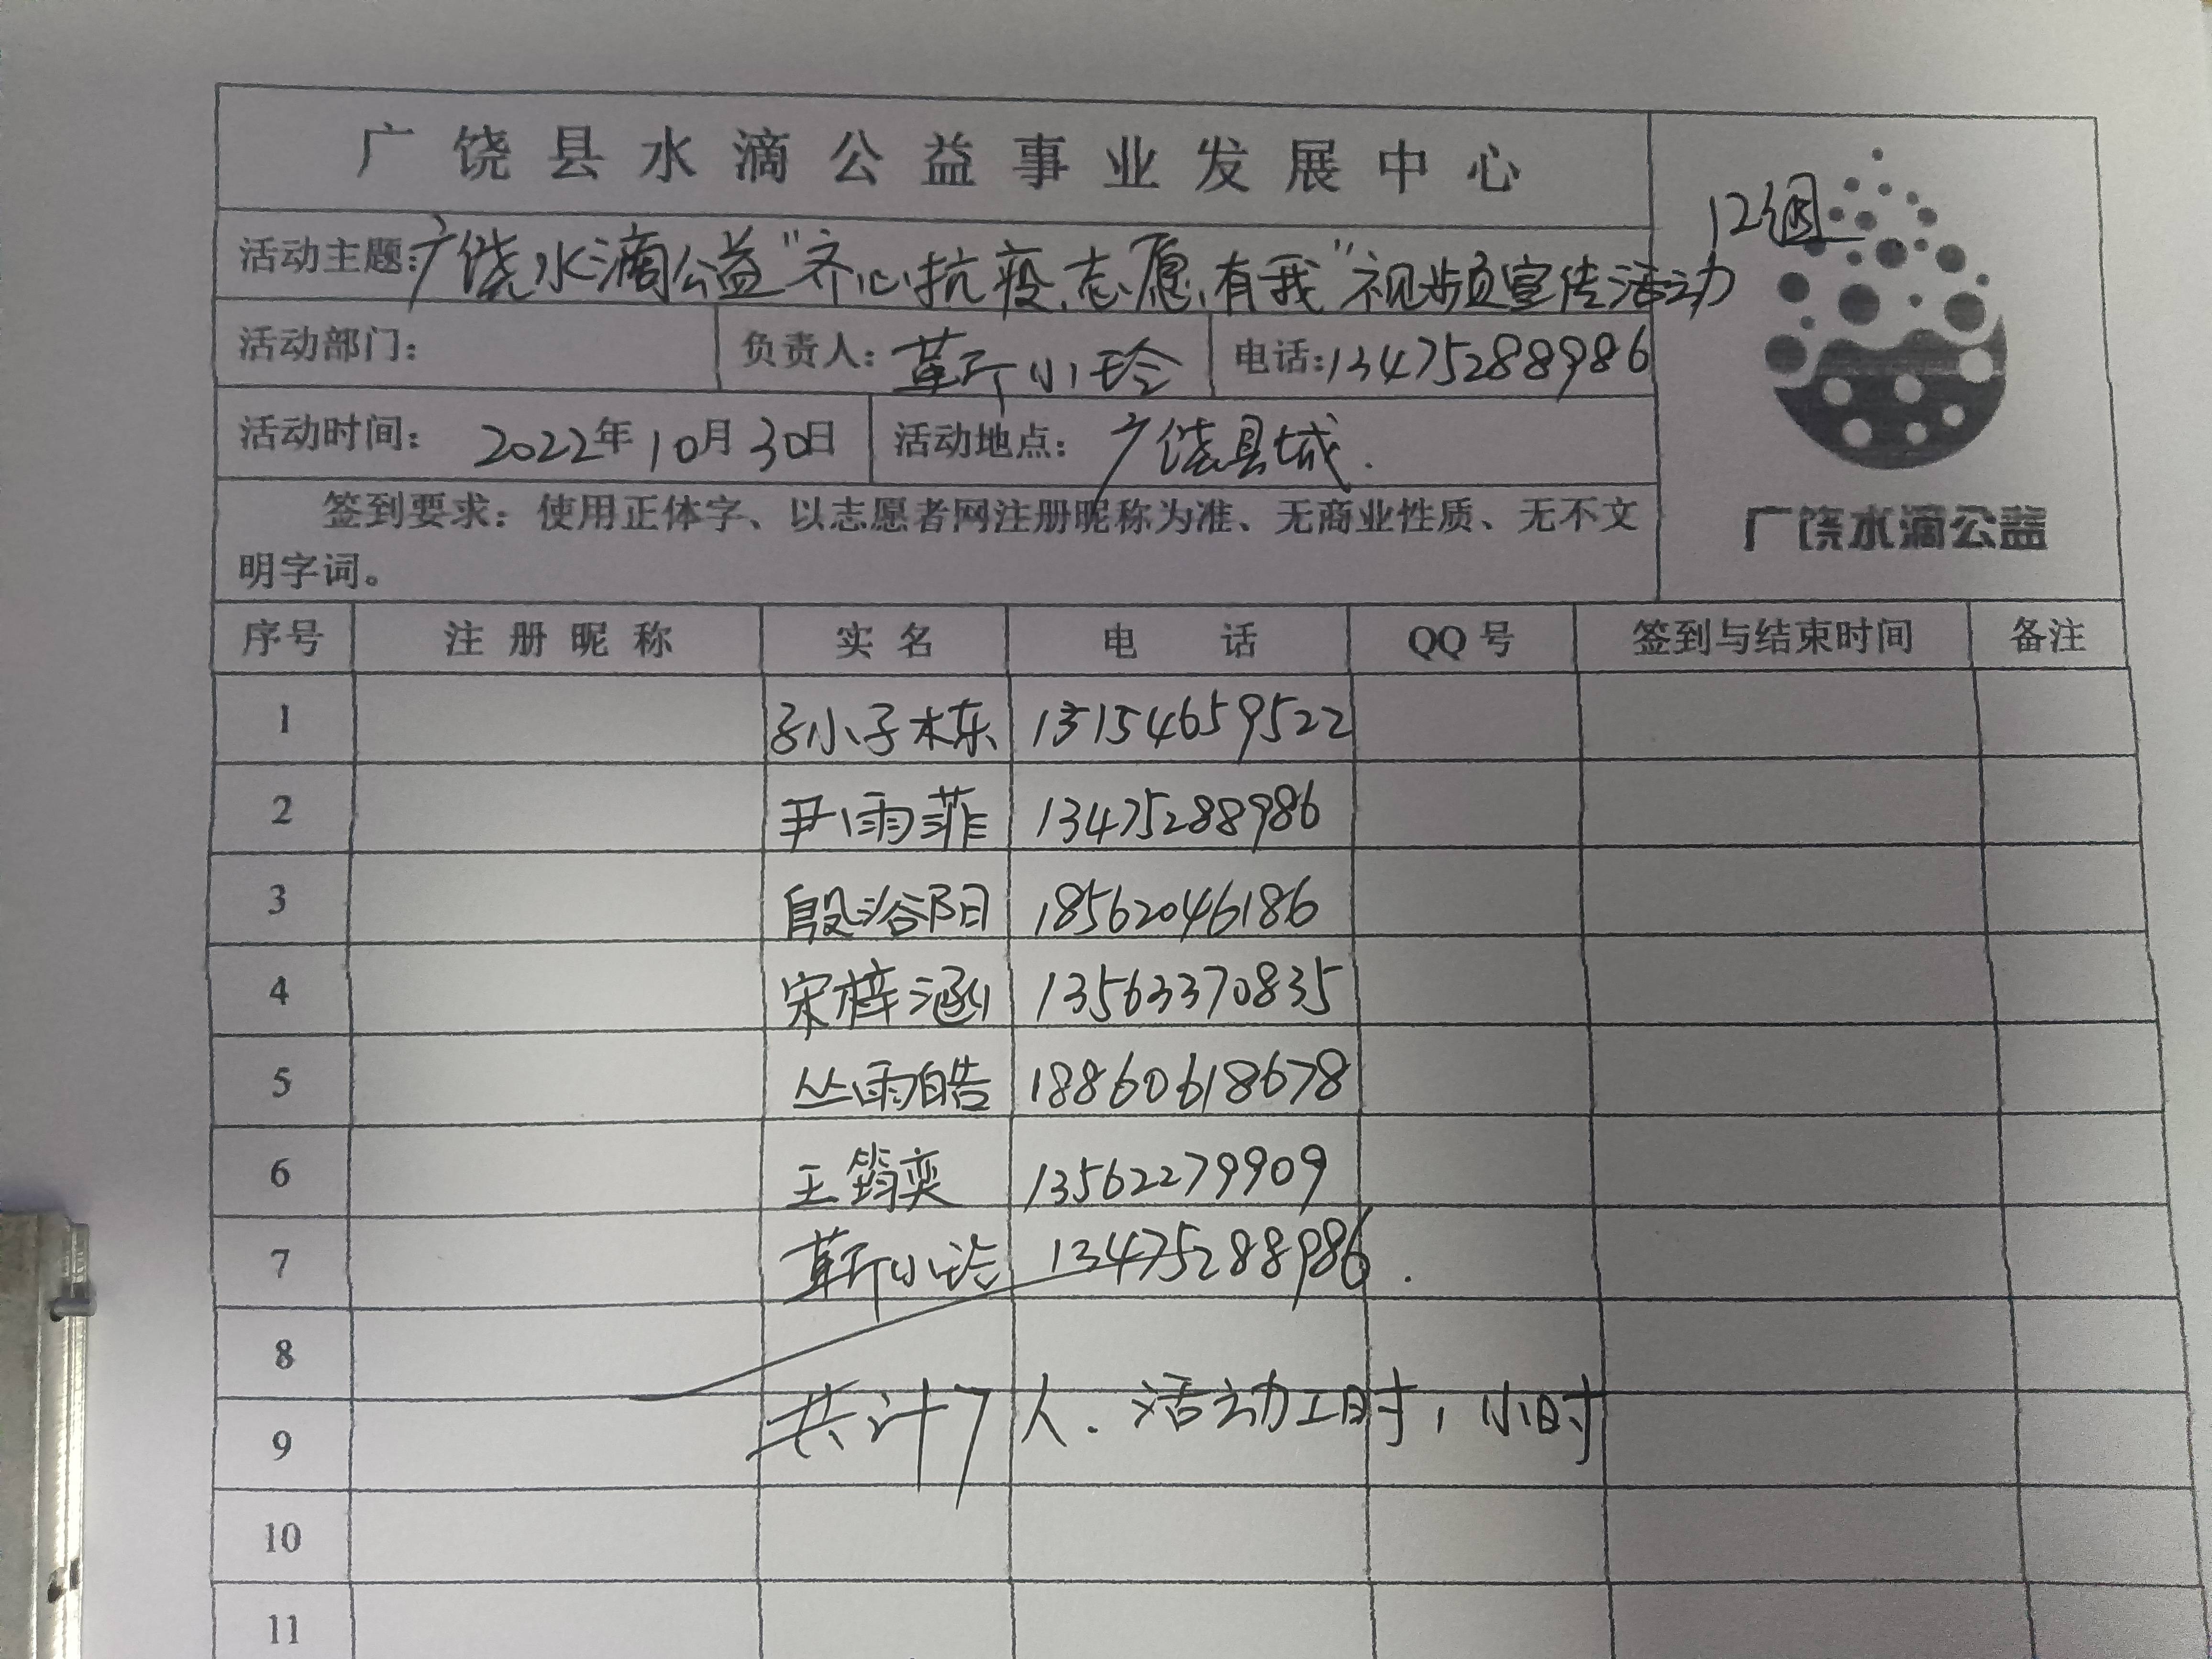 广饶县水滴公益事业发展中心
12组
活动主题:广饶水滴公益"齐心抗疫、志愿有我"视频宣传活动
活动部门: 负责人: 靳小玲 电话:13475288986
活动时间: 2022年10月30日 活动地点: 广饶县城.
签到要求:使用正体字、以志愿者网注册昵称为准、无商业性质、无不文
明字词。
广饶水滴公益
序号 注册昵称 实名 电话 QQ号 签到与结束时间 备注
1 孙子栋 13154659522
2 尹雨菲 13475288986
3 殷浴阳 18562046186
4 宋梓涵 13563370835
5 丛雨皓 18860618678
6 王筠奕 13562279909
7 靳小玲 13475288986.
8
共计7人.活动工时1小时
9
10
11